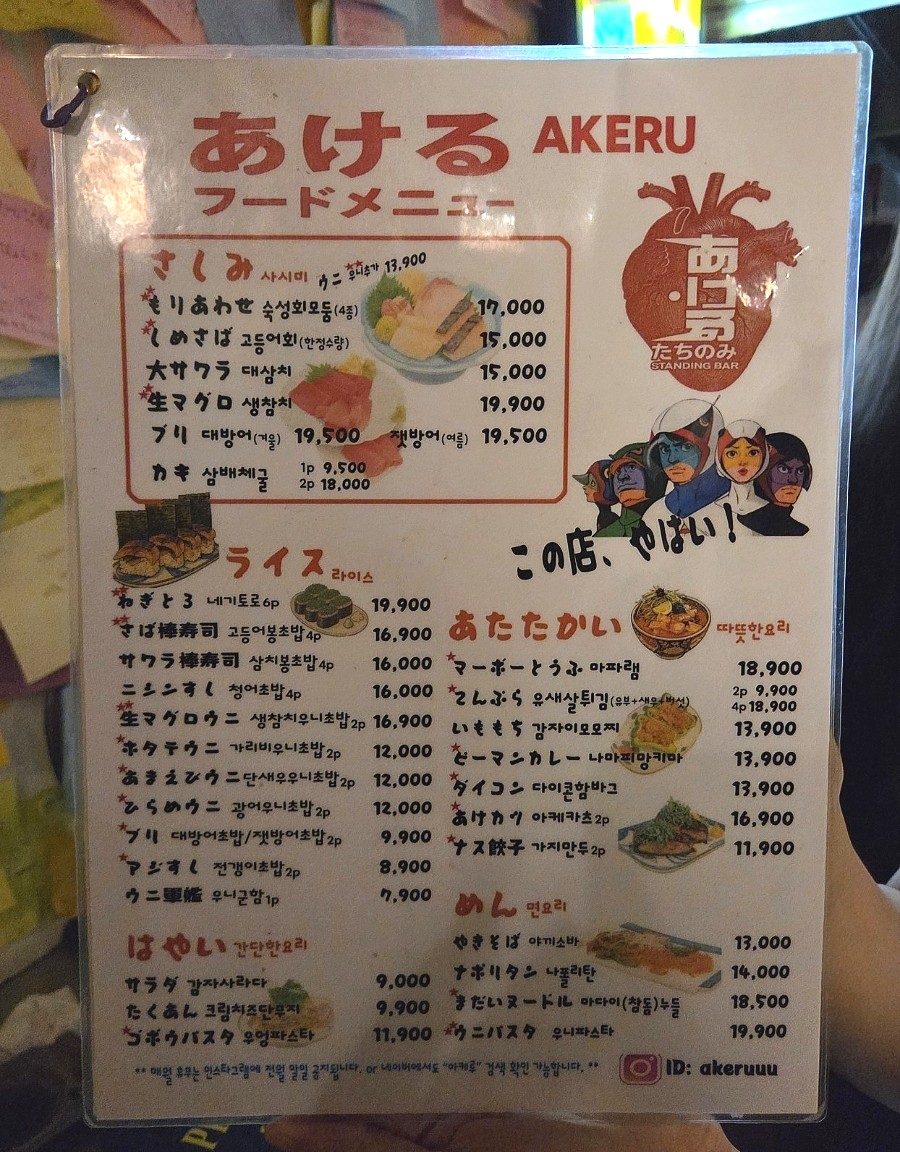 あける AKERU
フードメニュー
あける
たちのみ
STANDING BAR
さしみ 사시미 ウニ 우니추가 13,900
もりあわせ 숙성회모둠(4종) 17,000
しめさば 고등어회(한정수량) 15,000
大サワラ 대삼치 15,000
生マグロ 생참치 19,900
ブリ 대방어(겨울) 19,500 잿방어(여름) 19,500
カキ 삼배체굴 1p 9,500
2p 18,000
この店、やばい!
ライス 라이스
ねぎとろ 네기토로6p 19,900
さば棒寿司 고등어봉초밥4p 16,900
サワラ棒寿司 삼치봉초밥4p 16,000
ニシンすし 청어초밥4p 16,000
生マグロウニ 생참치우니초밥2p 16,900
ホタテウニ 가리비우니초밥2p 12,000
あまえびウニ 단새우우니초밥2p 12,000
ひらめウニ 광어우니초밥2p 12,000
ブリ 대방어초밥/잿방어초밥2p 9,900
アジすし 전갱이초밥2p 8,900
ウニ軍艦 우니군함1p 7,900
はやい 간단한요리
サラダ 감자사라다 9,000
たくあん 크림치즈단무지 9,900
ゴボウパスタ 우엉파스타 11,900
あたたかい 따뜻한요리
マーボーとうふ 마파램 18,900
てんぷら 유새살튀김(유부+새우+버섯) 2p 9,900
4p 18,900
いももち 감자이모모찌 13,900
ピーマンカレー 나마피망키마 13,900
ダイコン 다이콘함바그 13,900
あけカツ 아케카츠2p 16,900
ナス餃子 가지만두2p 11,900
めん 면요리
やきそば 야끼소바 13,000
ナポリタン 나폴리탄 14,000
まだいヌードル 마다이(참돔)누들 18,500
ウニパスタ 우니파스타 19,900
** 매월 휴무는 인스타그램에 전월 말일 공지됩니다. or 네이버에서도 "아케루" 검색 확인 가능합니다. **
ID: akeruuu